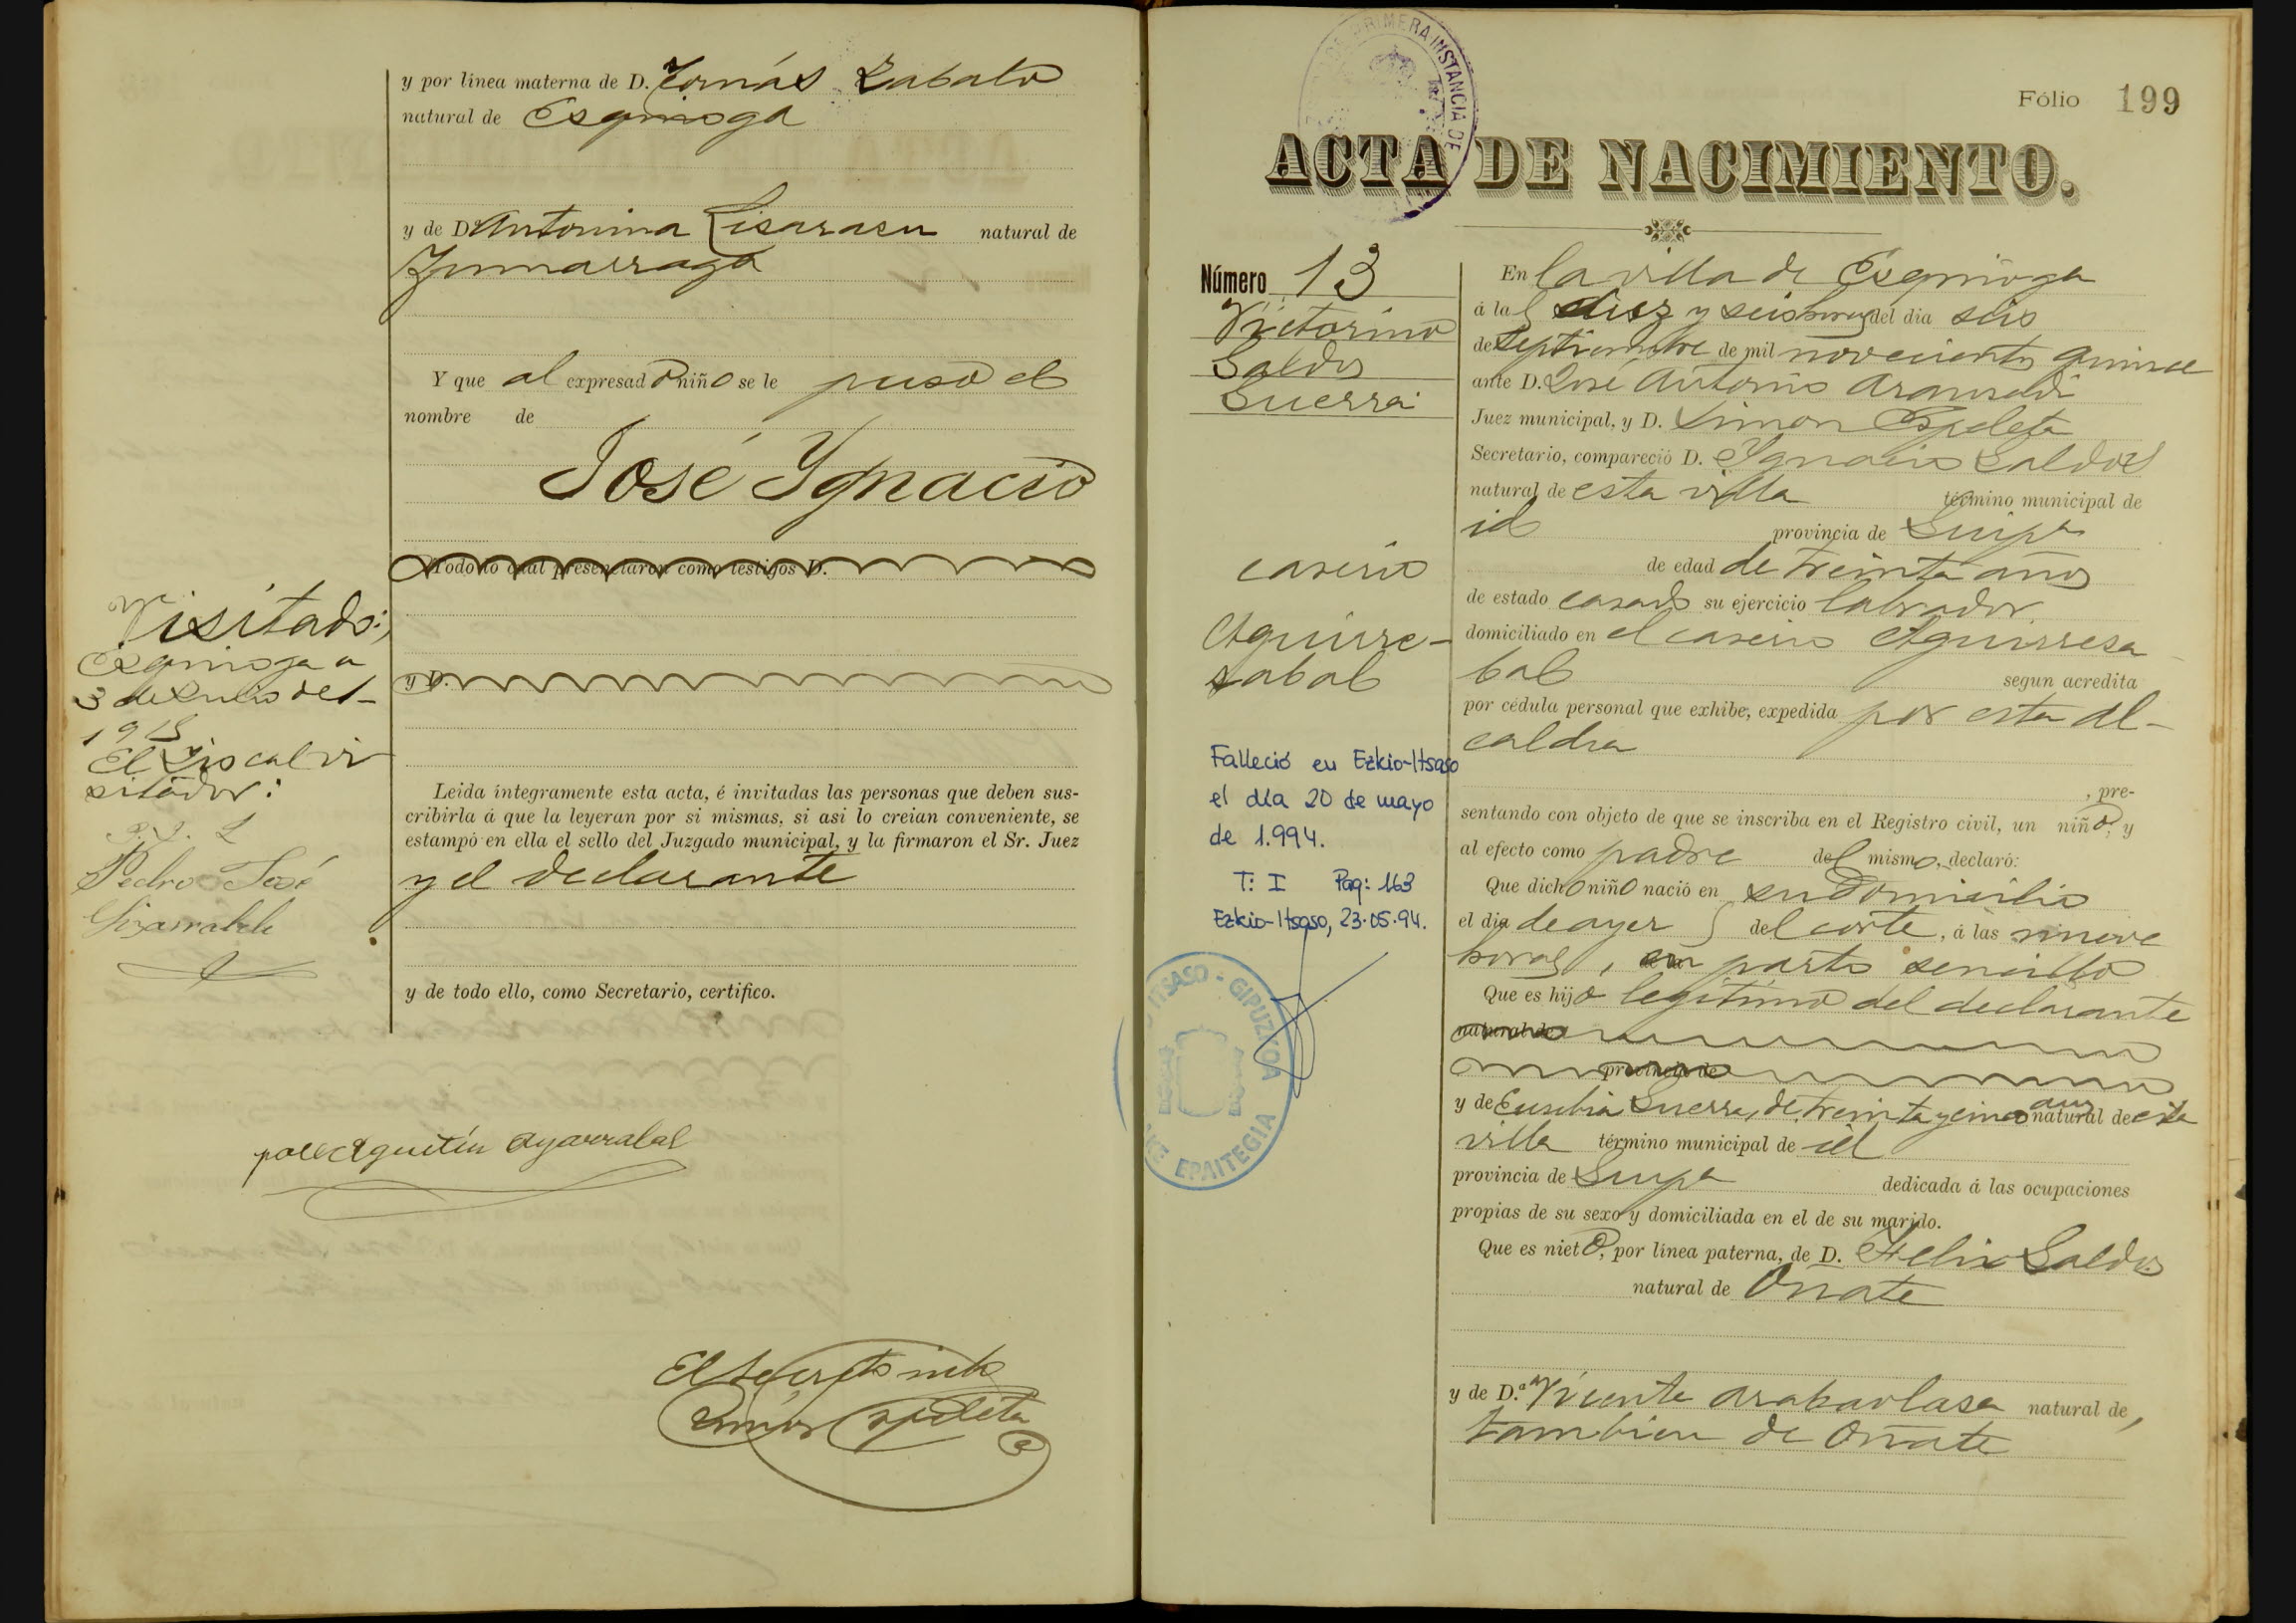 y por línea materna de D. Tomás Zabalo
natural de Esquioga
y de D.ª Antonina Lisarasu natural de
Zumarraga
Y que al expresado niño se le puso el
nombre de
José Ygnacio
Todo lo cual presenciaron como testigos D.
y D.
Leida íntegramente esta acta, é invitadas las personas que deben sus-
cribirla á que la leyeran por si mismas, si asi lo creian conveniente, se
estampó en ella el sello del Juzgado municipal, y la firmaron el Sr. Juez
y el declarante
y de todo ello, como Secretario, certifico.
Visitado:
Esquioga a
3 de Enero de
El Fiscal vi
sitador:
Pedro José
Agustín Ayarrabal
El Secreto
Simón Espeleta
PRIMERA INSTANCIA DE
Fólio 199
ACTA DE NACIMIENTO.
Número 13
Victorino
Galdos
Guerra
caserio
Aguirre-
zabal
Falleció en Ezkio-Itsaso
el día 20 de mayo
de 1.994.
T: I Pag: 163
Ezkio-Itsaso, 23-05-94.
ITSASO - GIPUZKOA
EPAITEGIA
En la villa de Esquioga
á las diez y seis horas del dia seis
de Septiembre de mil novecientos quince
ante D. José Antonio Aramendi
Juez municipal, y D. Simon Espeleta
Secretario, compareció D. Ygnacio Galdos
natural de esta villa término municipal de
id provincia de Guipa
de edad de treinta años
de estado casado su ejercicio labrador
domiciliado en el caserio Aguirresa
bal segun acredita
por cédula personal que exhibe, expedida por esta Al-
caldia
, pre-
sentando con objeto de que se inscriba en el Registro civil, un niño, y
al efecto como padre del mismo, declaró:
Que dicho niño nació en su domicilio
el dia de ayer del corte, á las nueve
horas, en parto sencillo
Que es hijo legítimo del declarante
natural de
provincia de
y de Eusebia Guerra, de treinta y cinco años natural de esta
villa término municipal de id
provincia de Guipa dedicada á las ocupaciones
propias de su sexo y domiciliada en el de su marido.
Que es nieto, por línea paterna, de D. Felix Galdos
natural de Oñate
y de D.ª Vicenta Arabaolasa natural de
tambien de Oñate